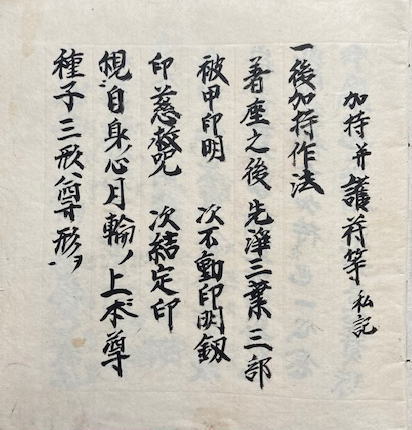 加持并護符等 私記
一後加持作法
着座之後 先淨三業 三部
被甲印明 次不動印明釼
印慈救呪 次結定印
観自身ノ心月輪ノ上本尊
種子三形尊形ヲ